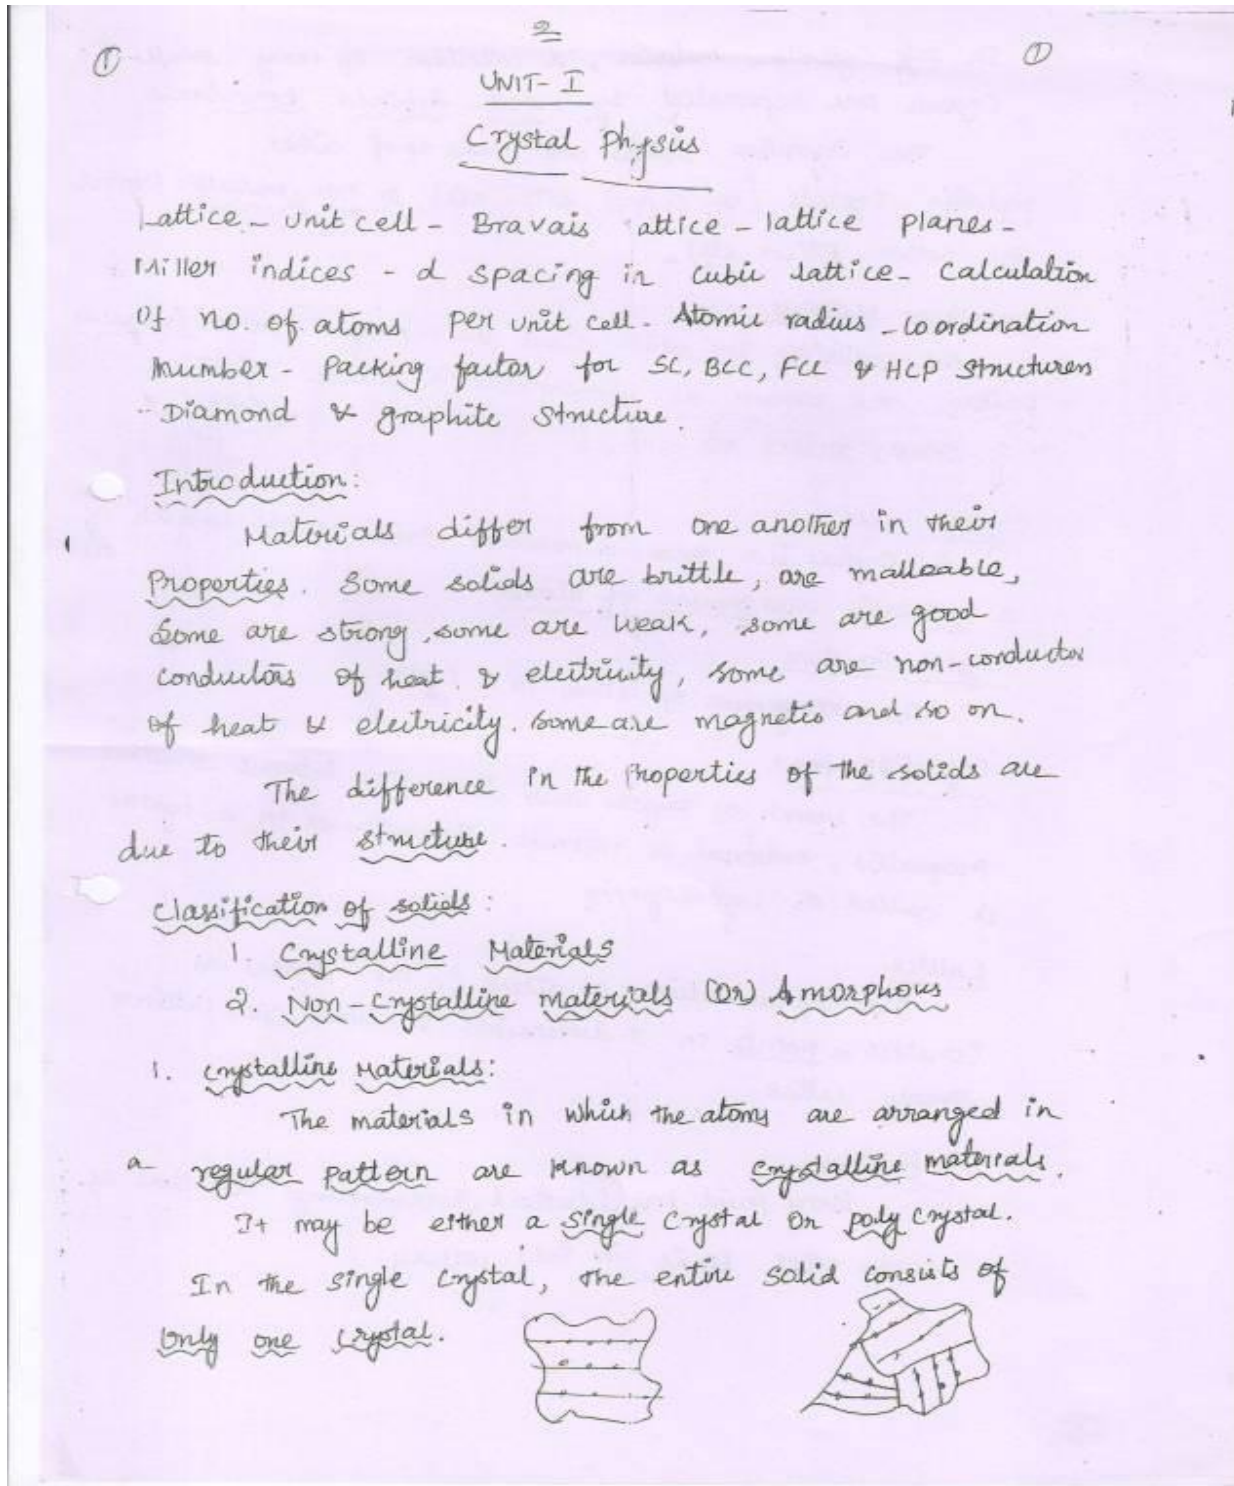 2
① ①
UNIT- I
Crystal Physis
Lattice - unit cell - Bravais attice - lattice planes -
Miller indices - d spacing in cubic lattice - calculation
of no. of atoms per unit cell - Atomic radius - coordination
number - Packing factor for SC, BCC, FCC & HCP structures
- Diamond & graphite structure.
Introduction:
Materials differ from one another in their
Properties. Some solids are brittle, are malleable,
some are strong, some are weak, some are good
conductors of heat & electricity, some are non-conductor
of heat & electricity. some are magnetic and so on.
The difference in the Properties of the solids are
due to their structure.
Classification of solids:
1. Crystalline Materials
2. Non-crystalline materials (Or) Amorphous
1. crystalline Materials:
The materials in which the atoms are arranged in
a regular pattern are known as crystalline materials.
It may be either a single crystal or poly crystal.
In the single crystal, the entire solid consists of
only one crystal.